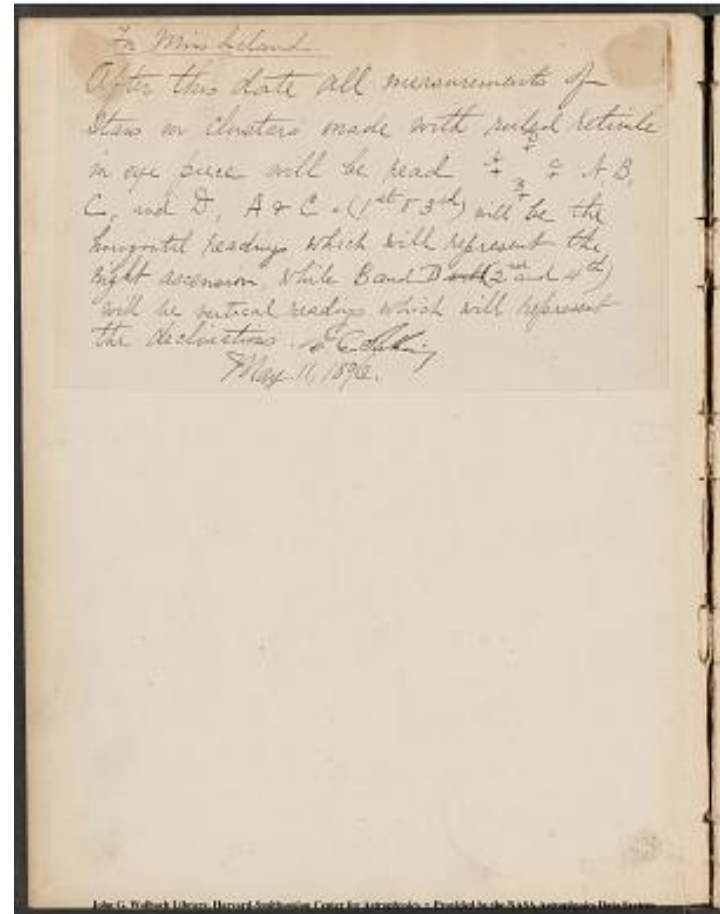 For Miss Leland.
After this date all measurements of
Stars in Clusters made with ruled reticule
in eye piece will be read A, B,
C, and D, A & C (1st & 3rd) will be the
horizontal readings which will represent the
right ascension, while B and D (2nd and 4th)
will be vertical readings which will represent
the declinations.
May 11, 1896.
John G. Wolbach Library, Harvard-Smithsonian Center for Astrophysics • Provided by the NASA Astrophysics Data System